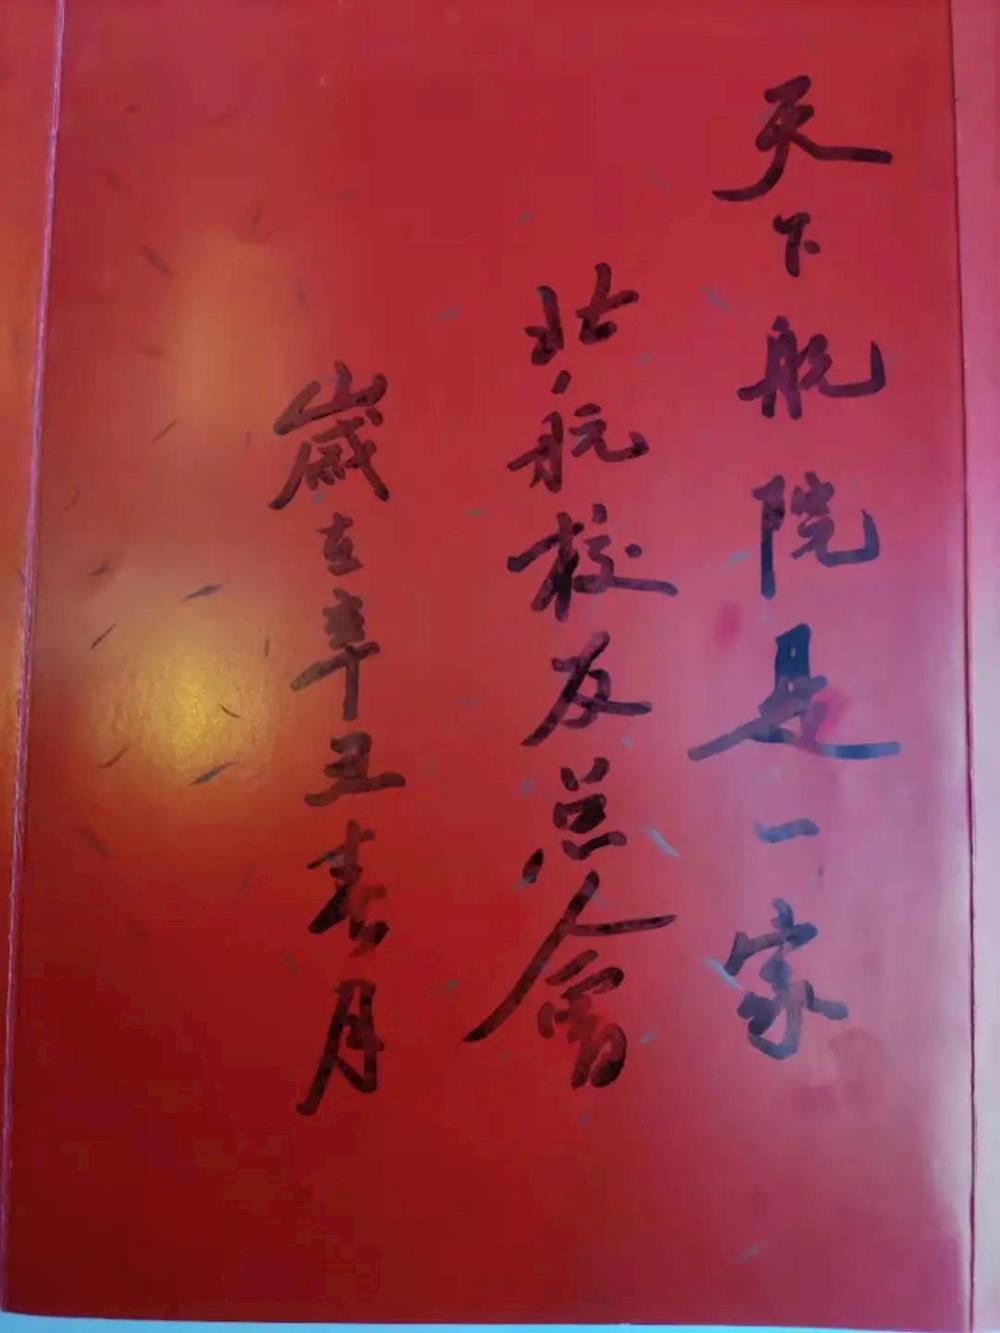 天下航院是一家
北航校友总會
歲在辛丑春月